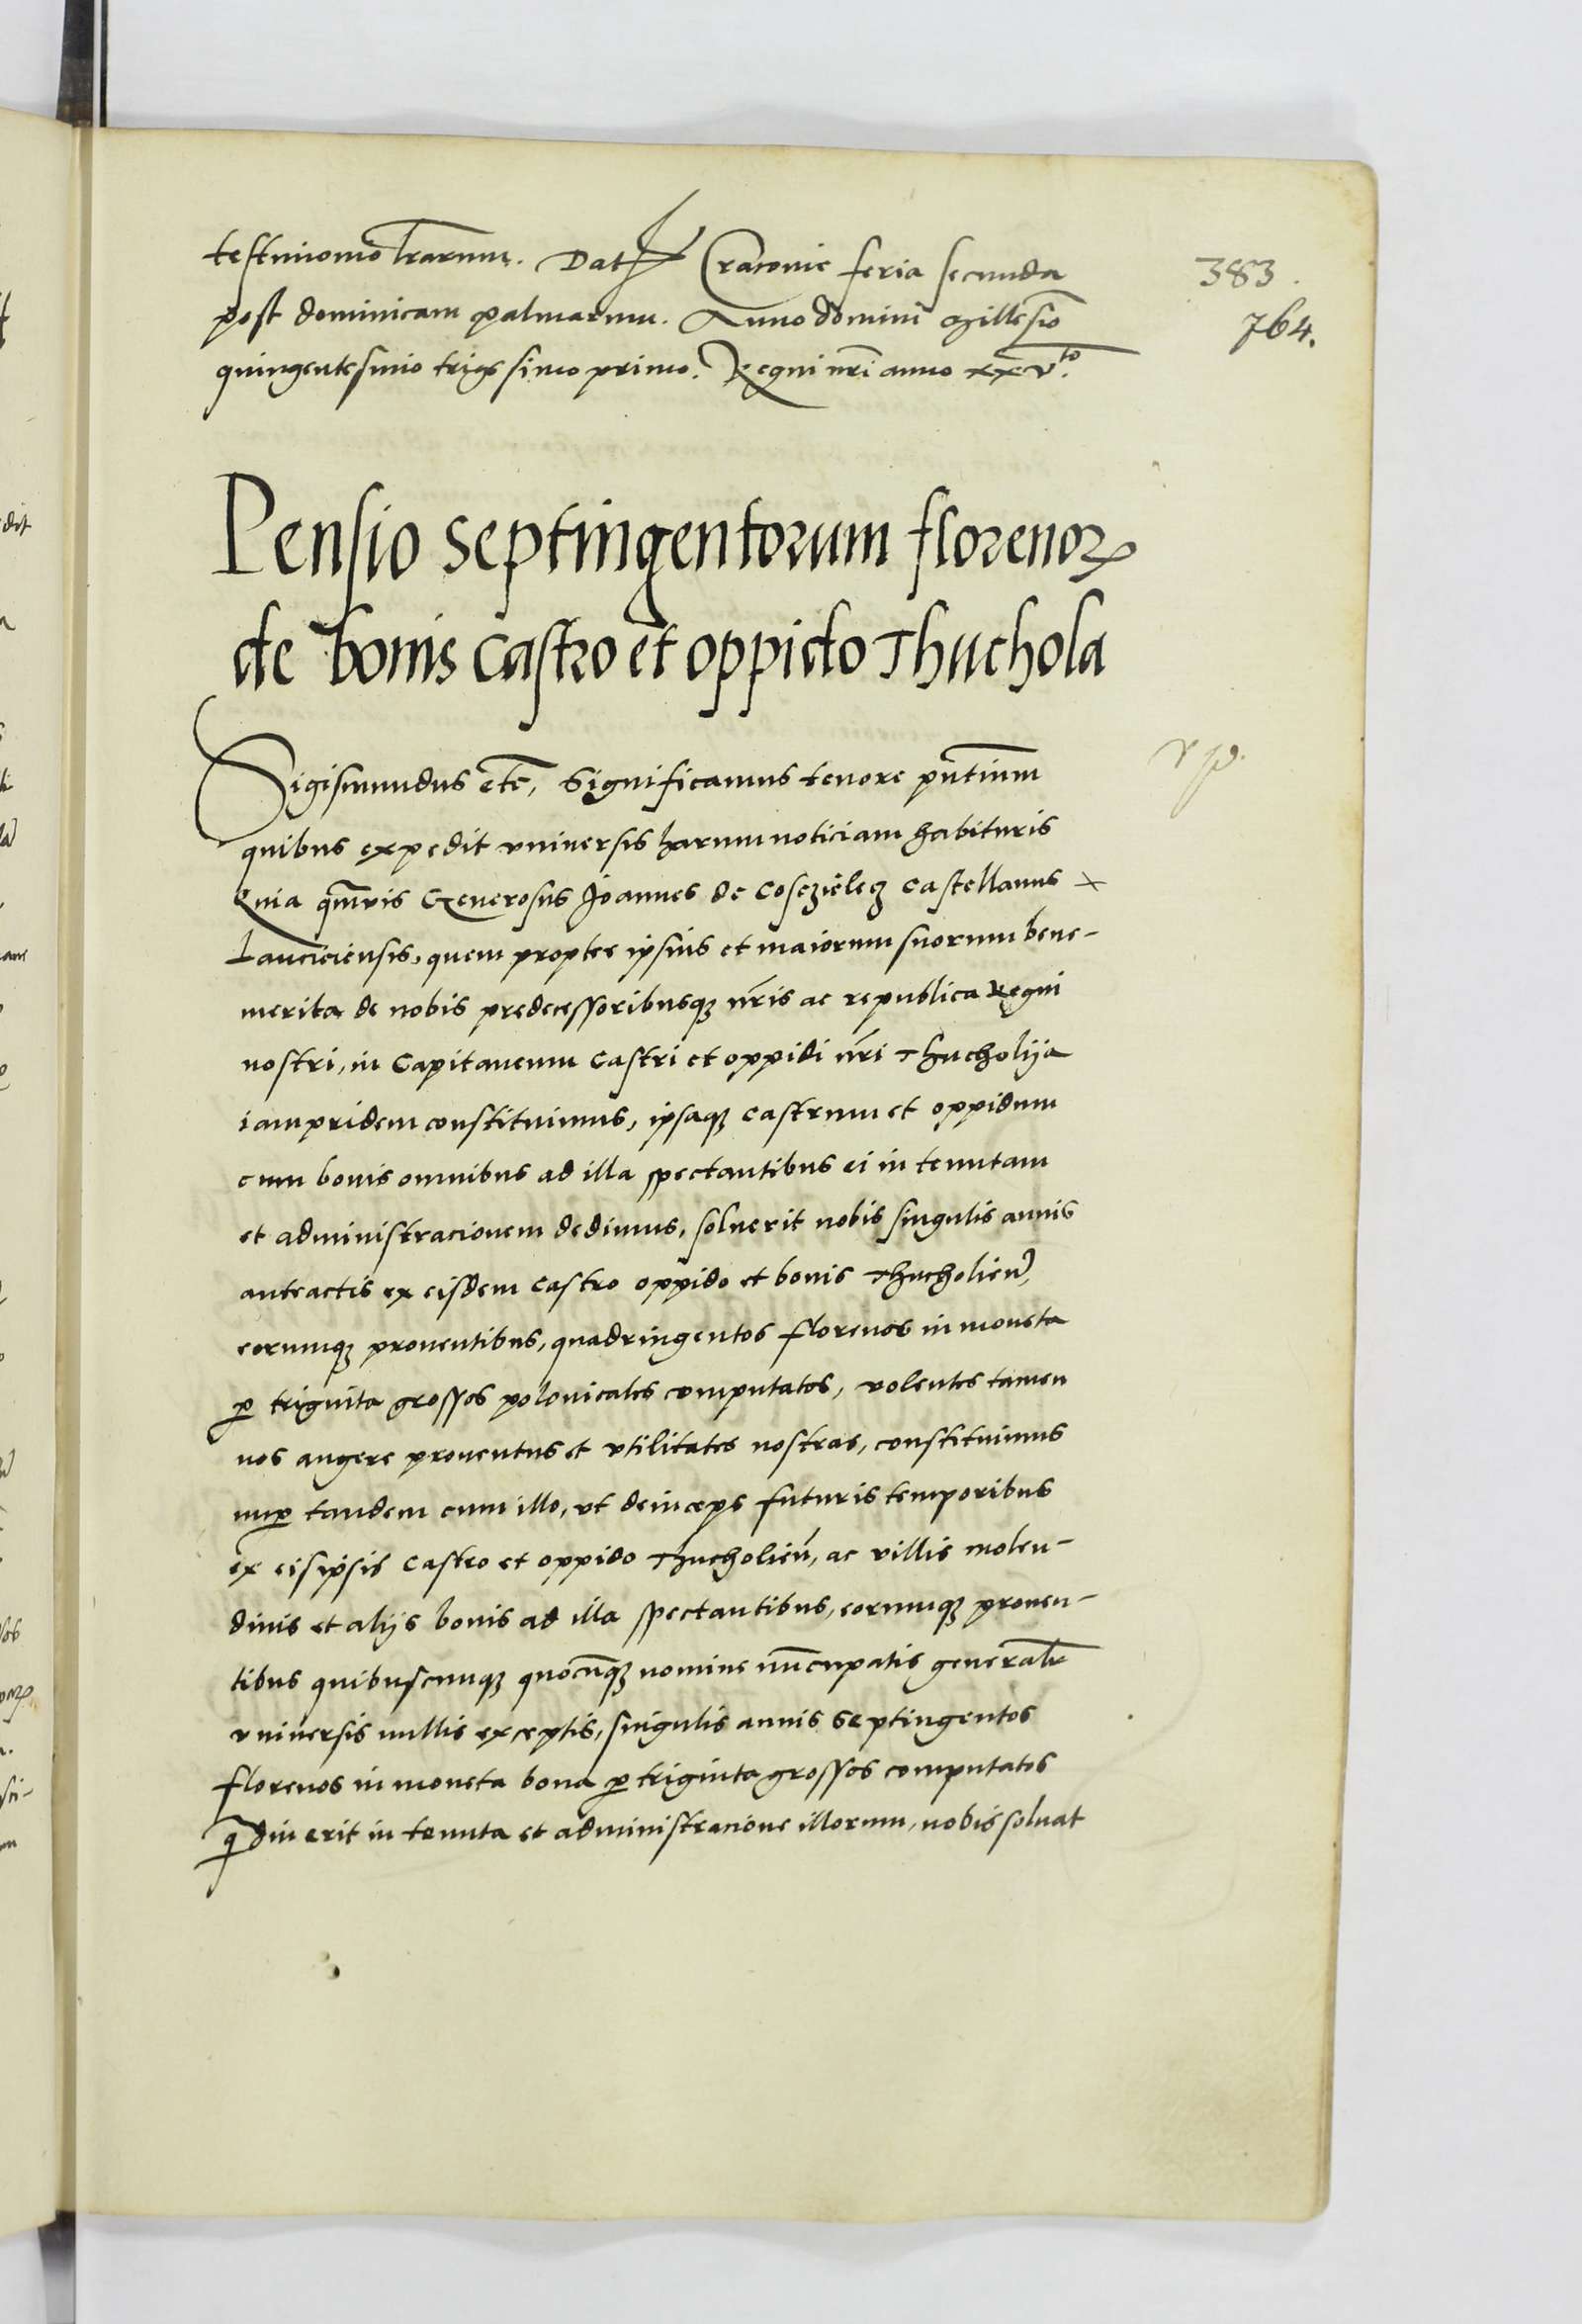 testimonio lrarum. Dat Cracovie feria secunda
post dominicam palmarum. Anno domini Millesio
quingentesimo trigesimo primo. Regni nri anno xxvto.
383.
764.
Pensio septingentorum florenorꝝ
de bonis castro et oppido Thuchola
Sigismundus etc, Significamus tenore pntium
quibus expedit vniversis harum noticiam habituris
Quia qmvis Generosus Joannes de Cosczielecz castellanus
Lanciciensis, quem propter ipsius et maiorum suorum bene-
merita de nobis predecessoribusqꝫ nris ac republica Regni
nostri, in Capitaneum castri et oppidi nri Thucholija
iampridem constituimus, ipsaqꝫ castrum et oppidum
cum bonis omnibus ad illa spectantibus ei in tenutam
et administracionem dedimus, soluerit nobis singulis annis
anteactis ex eisdem castro oppido et bonis Thucholien,
eorumqꝫ prouentibus, quadringentos florenos in moneta
ꝑ triginta grossos polonicales computatos, volentes tamen
nos augere prouentus et vtilitates nostras, constituimus
nuꝑ tandem cum illo, vt deinceps futuris temporibus
ex eisipsis castro et oppido Thucholien, ac villis molen-
dinis et alijs bonis ad illa spectantibus, eorumqꝫ prouen-
tibus quibuscunqꝫ quocunqꝫ nomine nuncupatis generalr
vniversis nullis exceptis, singulis annis septingentos
florenos in moneta bona ꝑ triginta grossos computatos
qdiu erit in tenuta et administracione illorum, nobis soluat